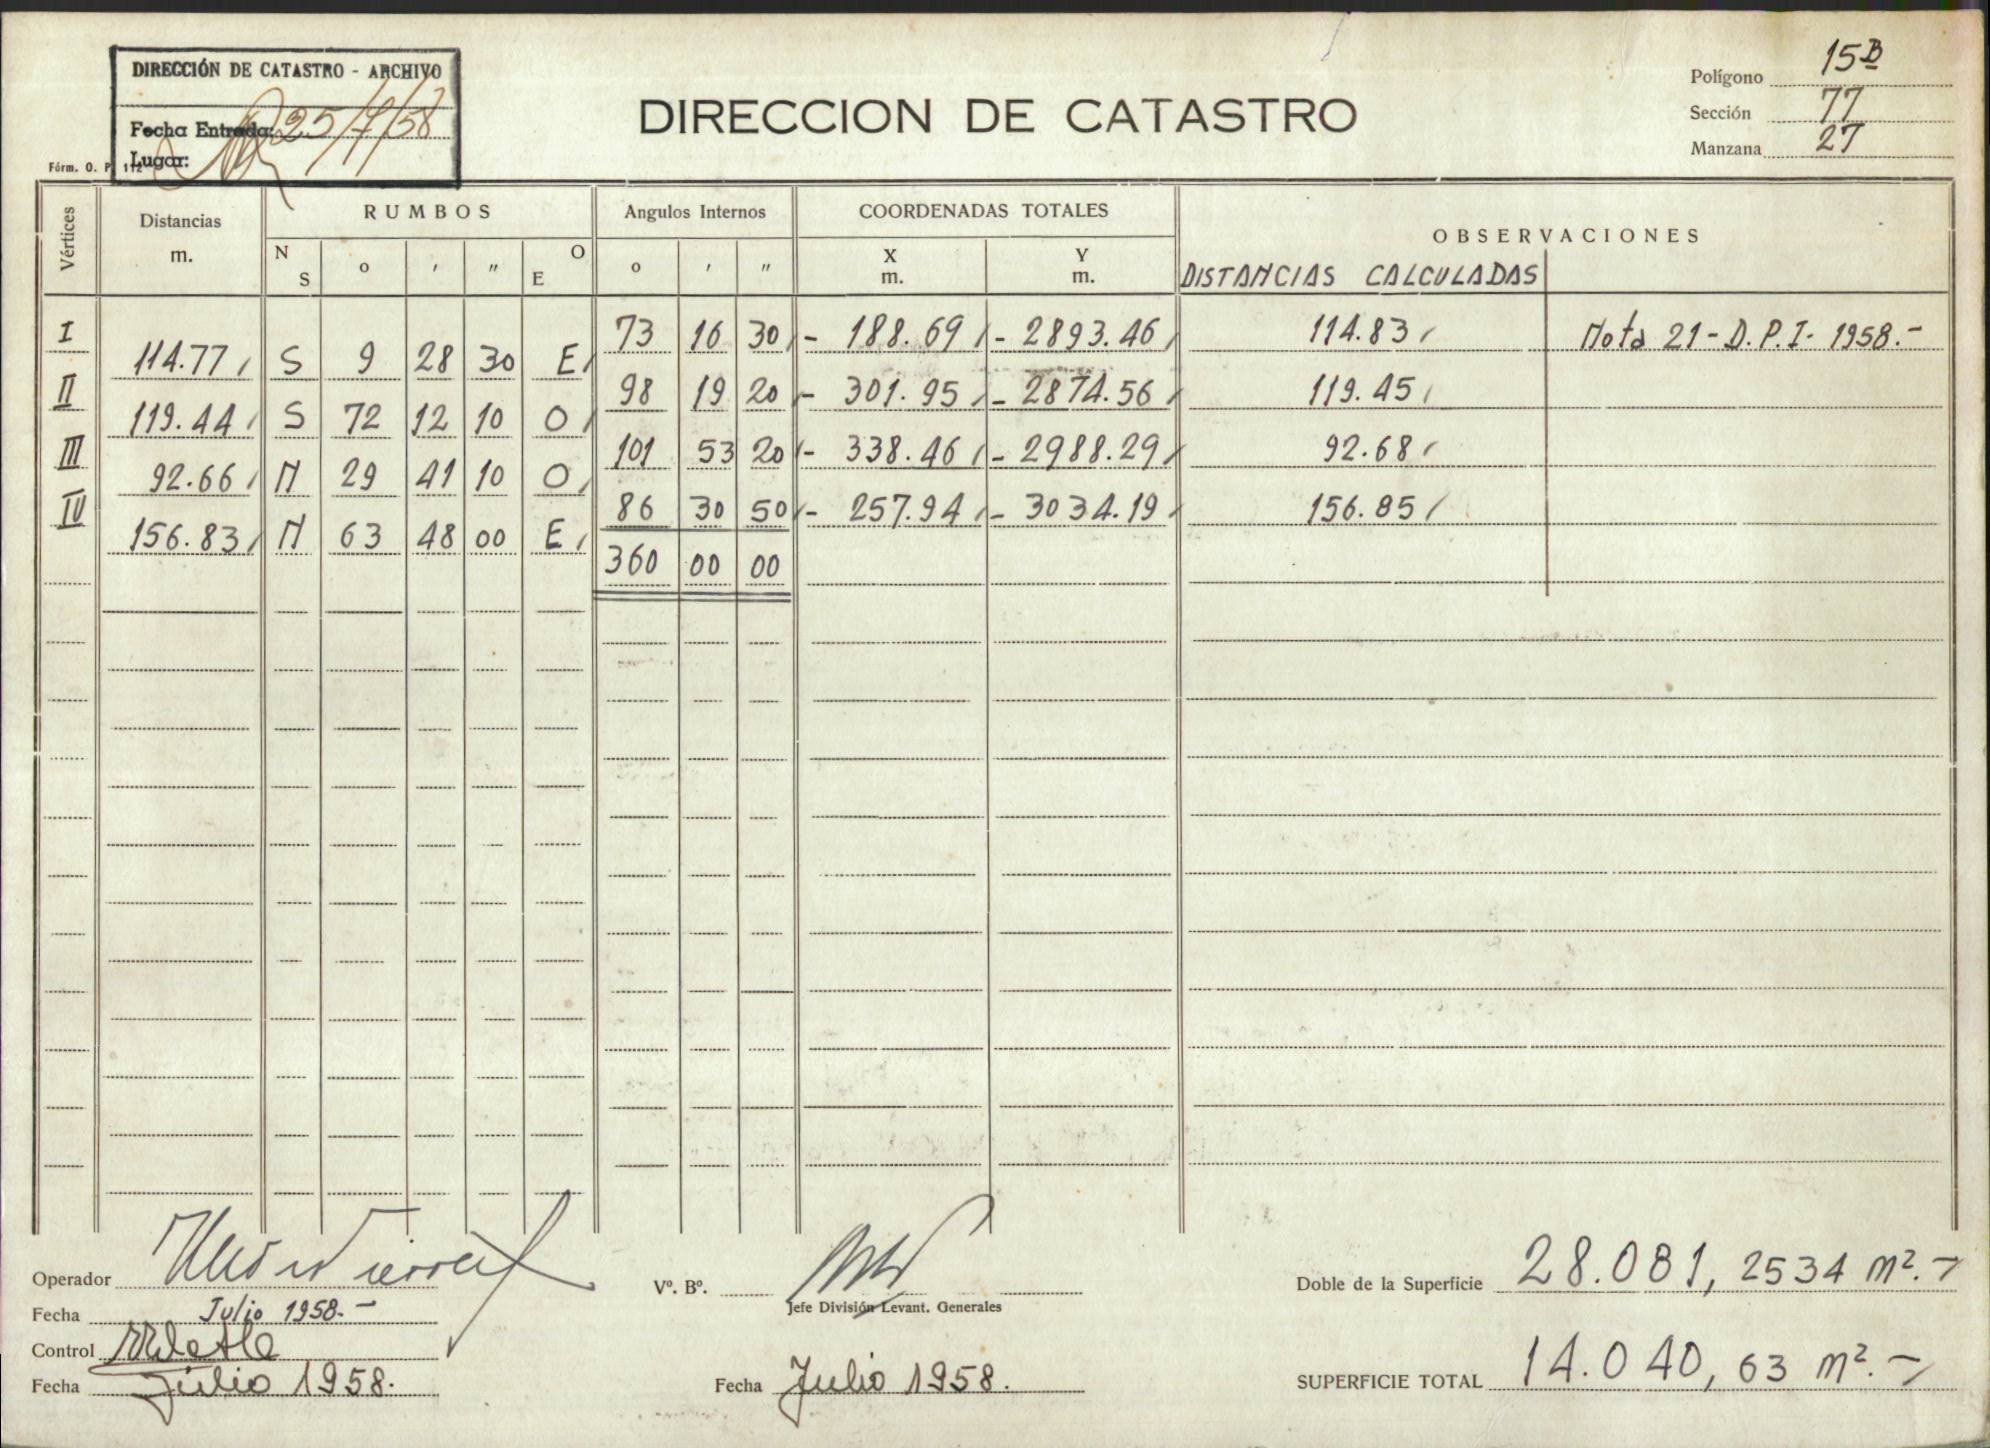 DIRECCIÓN DE CATASTRO - ARCHIVO
Fecha Entrada: 25/7/58
Lugar:
Fórm. O. P. 112
DIRECCION DE CATASTRO
Polígono 15B
Sección 77
Manzana 27
Vértices Distancias m. RUMBOS Angulos Internos COORDENADAS TOTALES OBSERVACIONES
N S o ′ ″ O E o ′ ″ X m. Y m. DISTANCIAS CALCULADAS
I 73 16 30 - 188.69 - 2893.46 114.83 Nota 21 - D.P.I- 1958.-
114.77 S 9 28 30 E
II 98 19 20 - 301.95 - 2874.56 119.45
119.44 S 72 12 10 O
III 101 53 20 - 338.46 - 2988.29 92.68
92.66 N 29 41 10 O
IV 86 30 50 - 257.94 - 3034.19 156.85
156.83 N 63 48 00 E
360 00 00
Operador
Fecha Julio 1958.-
Control
Fecha Julio 1958.
Vº. Bº.
Jefe División Levant. Generales
Fecha Julio 1958.
Doble de la Superficie 28.081, 2534 m².-
SUPERFICIE TOTAL 14.040, 63 m².-